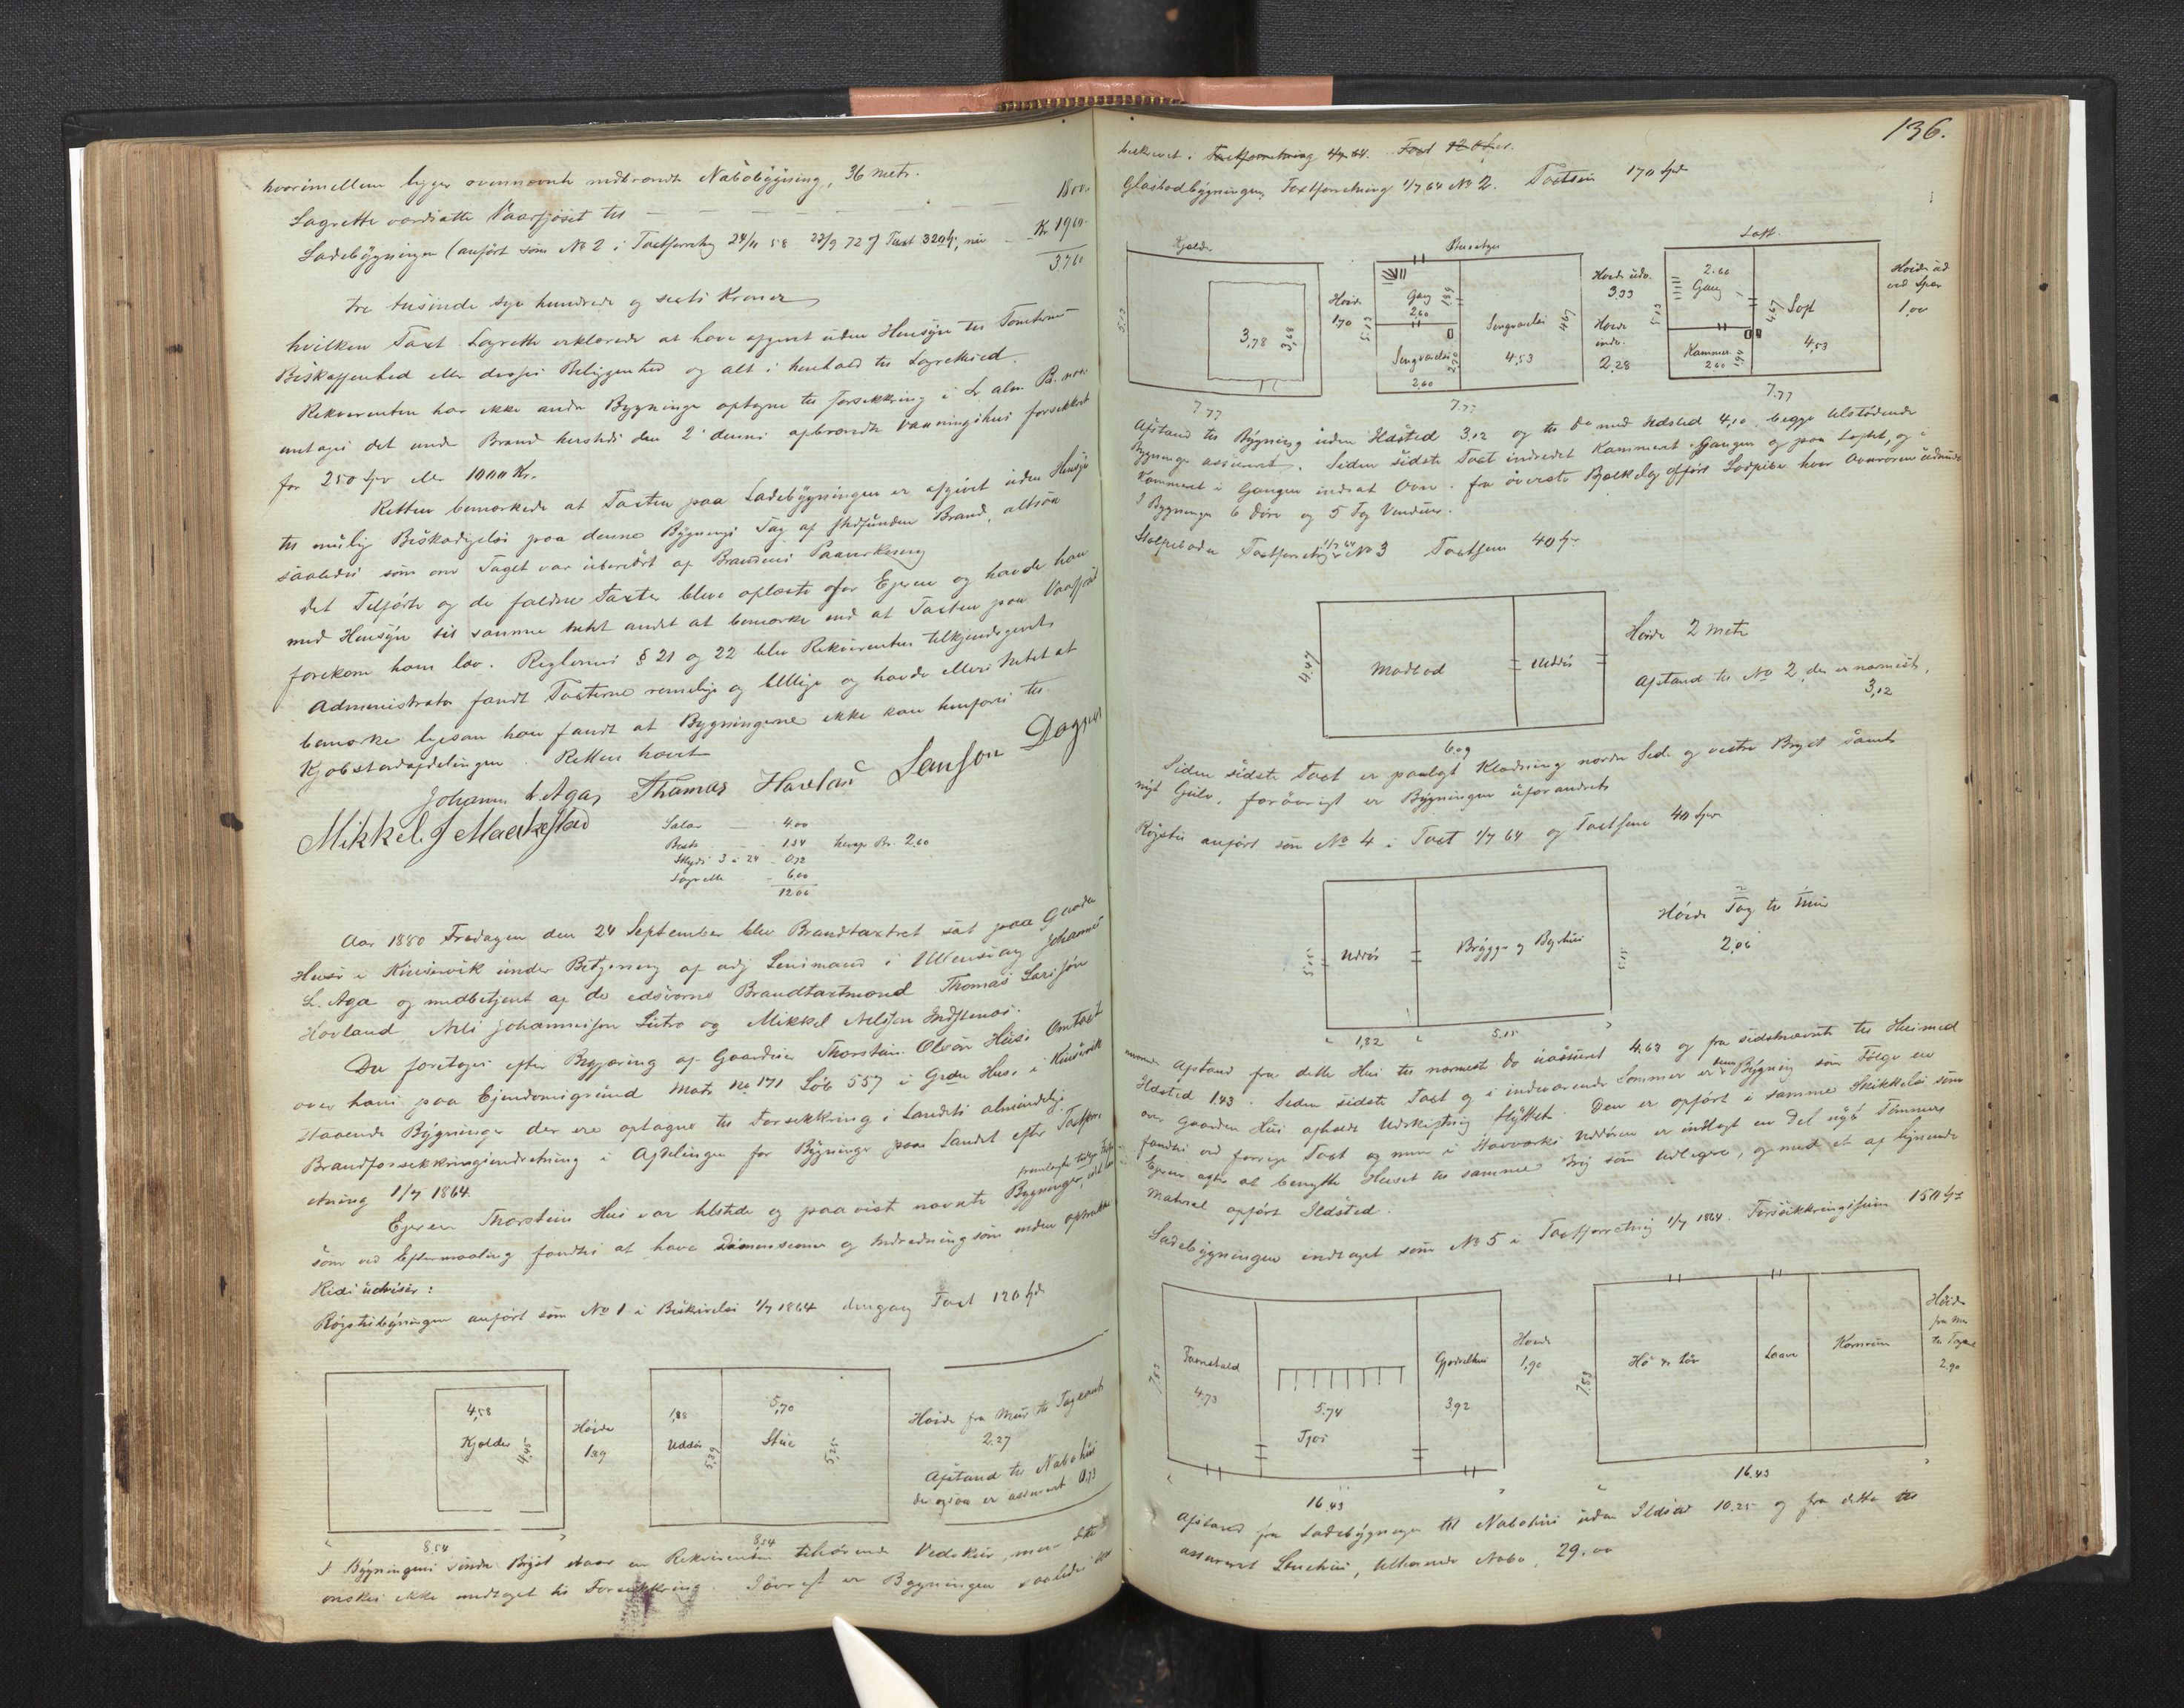 hvorimellem ligger ovennævnte nedbrændte Nabobygning, 36 metr.
Lagrette værdsatte Vaarfjøset til — — — — — 1800
Ladebygningen (anført som No 2 i Taxtforretng 24/11 58 23/9 72 Taxt 320 Sp, nu — Kr 1960
3760
tre tusinde syv hundrede og sexti Kroner
hvilken Taxt Lagrette erklærede at have afgivet uden Hensyn til Tomternes
Beskaffenhed eller dessens Beliggenhed og alt i henhold til Lagrettesed.
Rekvirenten har ikke andre Bygninger optagne til forsikkring i L. alm. B.
antages det under Brand hersteds den 2 dennes afbrændte Vaaningshus forsikkret
for 250 Spd eller 1000 Kr.
Retten bemærkede at Taxten paa Ladebygningen er afgivet uden Hensyn
til mulig Beskadigelse paa denne Bygnings Tag af stedfunden Brand, altsaa
saaledes som om Taget var uberørt af Brandens Paavirkning
Det Tilførte og de faldne Taxter bleve oplæste for Ejeren og havde han
med Hensyn til samme intet andet at bemærke end at Taxten paa Vaarfjøset
forekom ham lav. Reglernes § 21 og 22 blev Rekvirenten tilkjendegivet
Administrator fandt Taxterne rimelige og billige og havde ellers Intet at
bemærke ligesom han fandt at Bygningerne ikke kan henføres til
Kjøbstadafdelingen. Retten hævet
Johannes L. Aga, Thomas Havland Larsson
Mikkel J Maakestad
Salær — 4.00
Besk — 1.34 heraf Br. 2.60
Skyds 3 à 24 - 0.72
Lagrette — 6.00
12.06
Aar 1880 Fredagen den 24 September blev Brandtaxtret sat paa Gaarden
Huse i Kinservik under Betjening af adj Lensmand i Ullensvang Johannes
L. Aga og medbetjent af de edsvorne Brandtaxtmænd Thomas Larsson
Hovland, Nils Johannesson Lutro og Mikkel Nilsson Indstenæs.
Der foretoges efter Begjæring af Gaardeier Thorstein Olsen Huse Omtaxt
over hans paa Ejendomsgrund Matr No 171 Løb 557 i Grdn Huse i Kinservik
staaende Bygninger der ere optagne til Forsikkring i Landets almindelige
Brandforsikkringsindretning i Afdelingen for Bygninger paa Landet efter Taxtforr-
etning 1/7 1864.
Ejeren Thorstein Huse var tilstede og paaviste nævnte Bygninger,
som ved Eftermaaling fandtes at have Dimensioner og Indredning som neden optrukne
Rids udviser:
Røgstuebygningen anført som No 1 i Beskrivelse 1/7 1864 dengang Taxt 120 Spd
4,58
Kjelder
4,45
8.54
Høide
1.89
1,85
Uddør
5,39
5,70
Stue
5,25
8,54
Høide fra Muur til Tagkant
2.27
Afstand til Nabohus
der ogsaa er assureret 0,73
I Bygningens søndre Bryst staar en Rekvirenten tilhørende Vedskur, men dette
ønskes ikke medtaget til Forsikkring. Iøvrigt er Bygningen saaledes som
136.
beskrevet i Taxtforretning 1/7 64. Taxt
Glasbodbygningen, Taxtforretning 1/7 64 No 2. Taxtsum 170 Spd
Kjelder
5.13
3,78
3,68
7.77
Høide
1.70
Beboelse
Gang 1,89
2,60
Sengværelse 2,70
2,60
5.13
Sengværelse
4,53
4,67
7.77
Høide udv.
3.33
Høide
indv.
2.28
Loft.
2.60
Gang
Kammer
2.60 1,94
5,13
4,67
Loft
4,53
7.77
Høide ud
ved Spær
1,00
Afstand til Bygning uden Ildsted 3.12 og til Do med Ildsted 4,10, begge tilstødende
Bygninger assureret. Siden sidste Taxt indredet Kammeret i Gangen og paa Loftet, og i
Kammeret i Gangen indsat Ovn. Fra øverste Bjelkelag opført Lodpibe hvor Ovnrøren udmunde
I Bygningen 6 Døre og 5 Fag Vinduer.
Stolpeboden Taxtforretng 1/7 64 No 3 Taxtsum 40 Spd
4.47
Madbod
Uddør
6.09
Høide 2 Metr
Afstand til No 2, der er nærmest,
3,12
Siden sidste Taxt er paalagt Klædning nordre Side og vestre Bryst samt
nyt Gulv, forøvrigt er Bygningen uforandret
Røgstue anført som No 4 i Taxt 1/7 64 og Taxtsum 40 Spd
5.15
Uddør
Brygge og Baghus
5.15
1,82
5.15
Høide Tag til Muur
2,06
Afstand fra dette Hus til nærmeste do uassureret 4.63 og fra sidstnævnte til Hus med
Ildsted 1.43. Siden sidste Taxt og i indeværende Sommer er denne Bygning som Følge en
over Gaarden Huse afholdt Udskiftning flyttet. Den er opført i samme Skikkelse som
fandtes ved forrige Taxt og men i Uddøren er indlagt en Del nyt Tømmer
Ejeren agter at benytte Huset til samme Brug som tidligere, og med et af lignende
Material opført Ildsted.
Ladebygningen indtaget som No 5 i Taxtforretng 1/7 1864. Forsikkringssum 150 Spd
7.53
Faarestald
4.73
5.74
Fjøs
Gjødselhus
3,92
16.43
Høide
1,90
7.53
Hø og Løv
Laave
Kornrum
16.43
Høide
fra Mur
til Tage
2,90
Afstand fra Ladebygningen til Nabohus uden Ildsted 10.25 og fra dette til
assureret Stuehus, tilhørende Nabo, 29.00